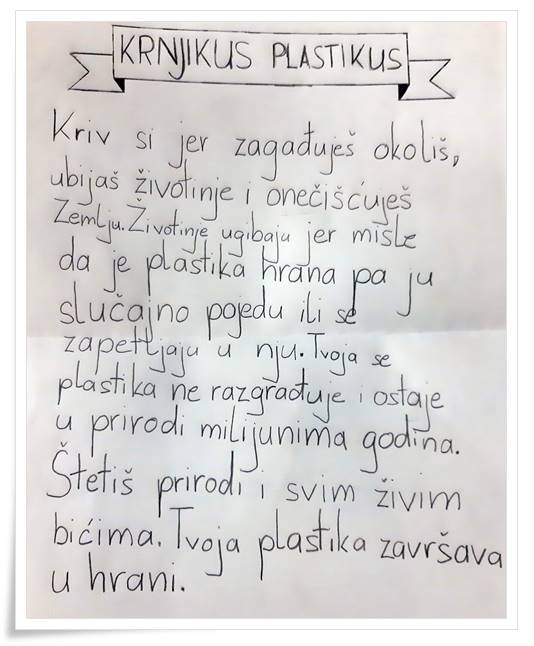 KRNJIKUS PLASTIKUS
Kriv si jer zagađuješ okoliš,
ubijaš životinje i onečišćuješ
Zemlju. Životinje ugibaju jer misle
da je plastika hrana pa ju
slučajno pojedu ili se
zapetljaju u nju. Tvoja se
plastika ne razgrađuje i ostaje
u prirodi milijunima godina.
Štetiš prirodi i svim živim
bićima. Tvoja plastika završava
u hrani.